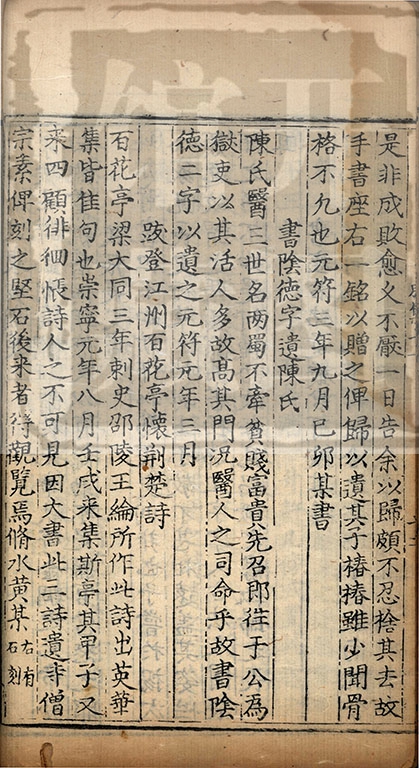 是非成敗愈乂不厭一日告余以歸頗不忍捨其去故
手書座右一銘以贈之俾歸以遺其子椿椿雖少聞骨
格不凡也元符三年九月已卯某書
書陰德字遺陳氏
陳氏醫三世名两蜀不牽貧賤富貴先召郎徃于公為
獄吏以其活人多故髙其門况醫人之司命乎故書陰
德二字以遺之元符元年三月
跋登江州百花亭懷荆楚詩
百花亭梁大同三年刺史邵陵王綸所作此詩出英華
集皆佳句也崇寧元年八月壬戌来集斯亭其甲子又
来四顧徘徊悵詩人之不可見因大書此二詩遺寺僧
宗素俾刻之堅石後来者得觀覽焉脩水黄某右有石刻